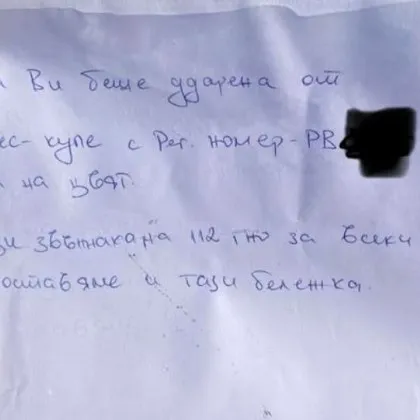 Ви беше ударена от
ес- купе с Рег. номер - РВ
на цвят.
звъннаха на 112 но за всеки
оставяме и тази бележка.